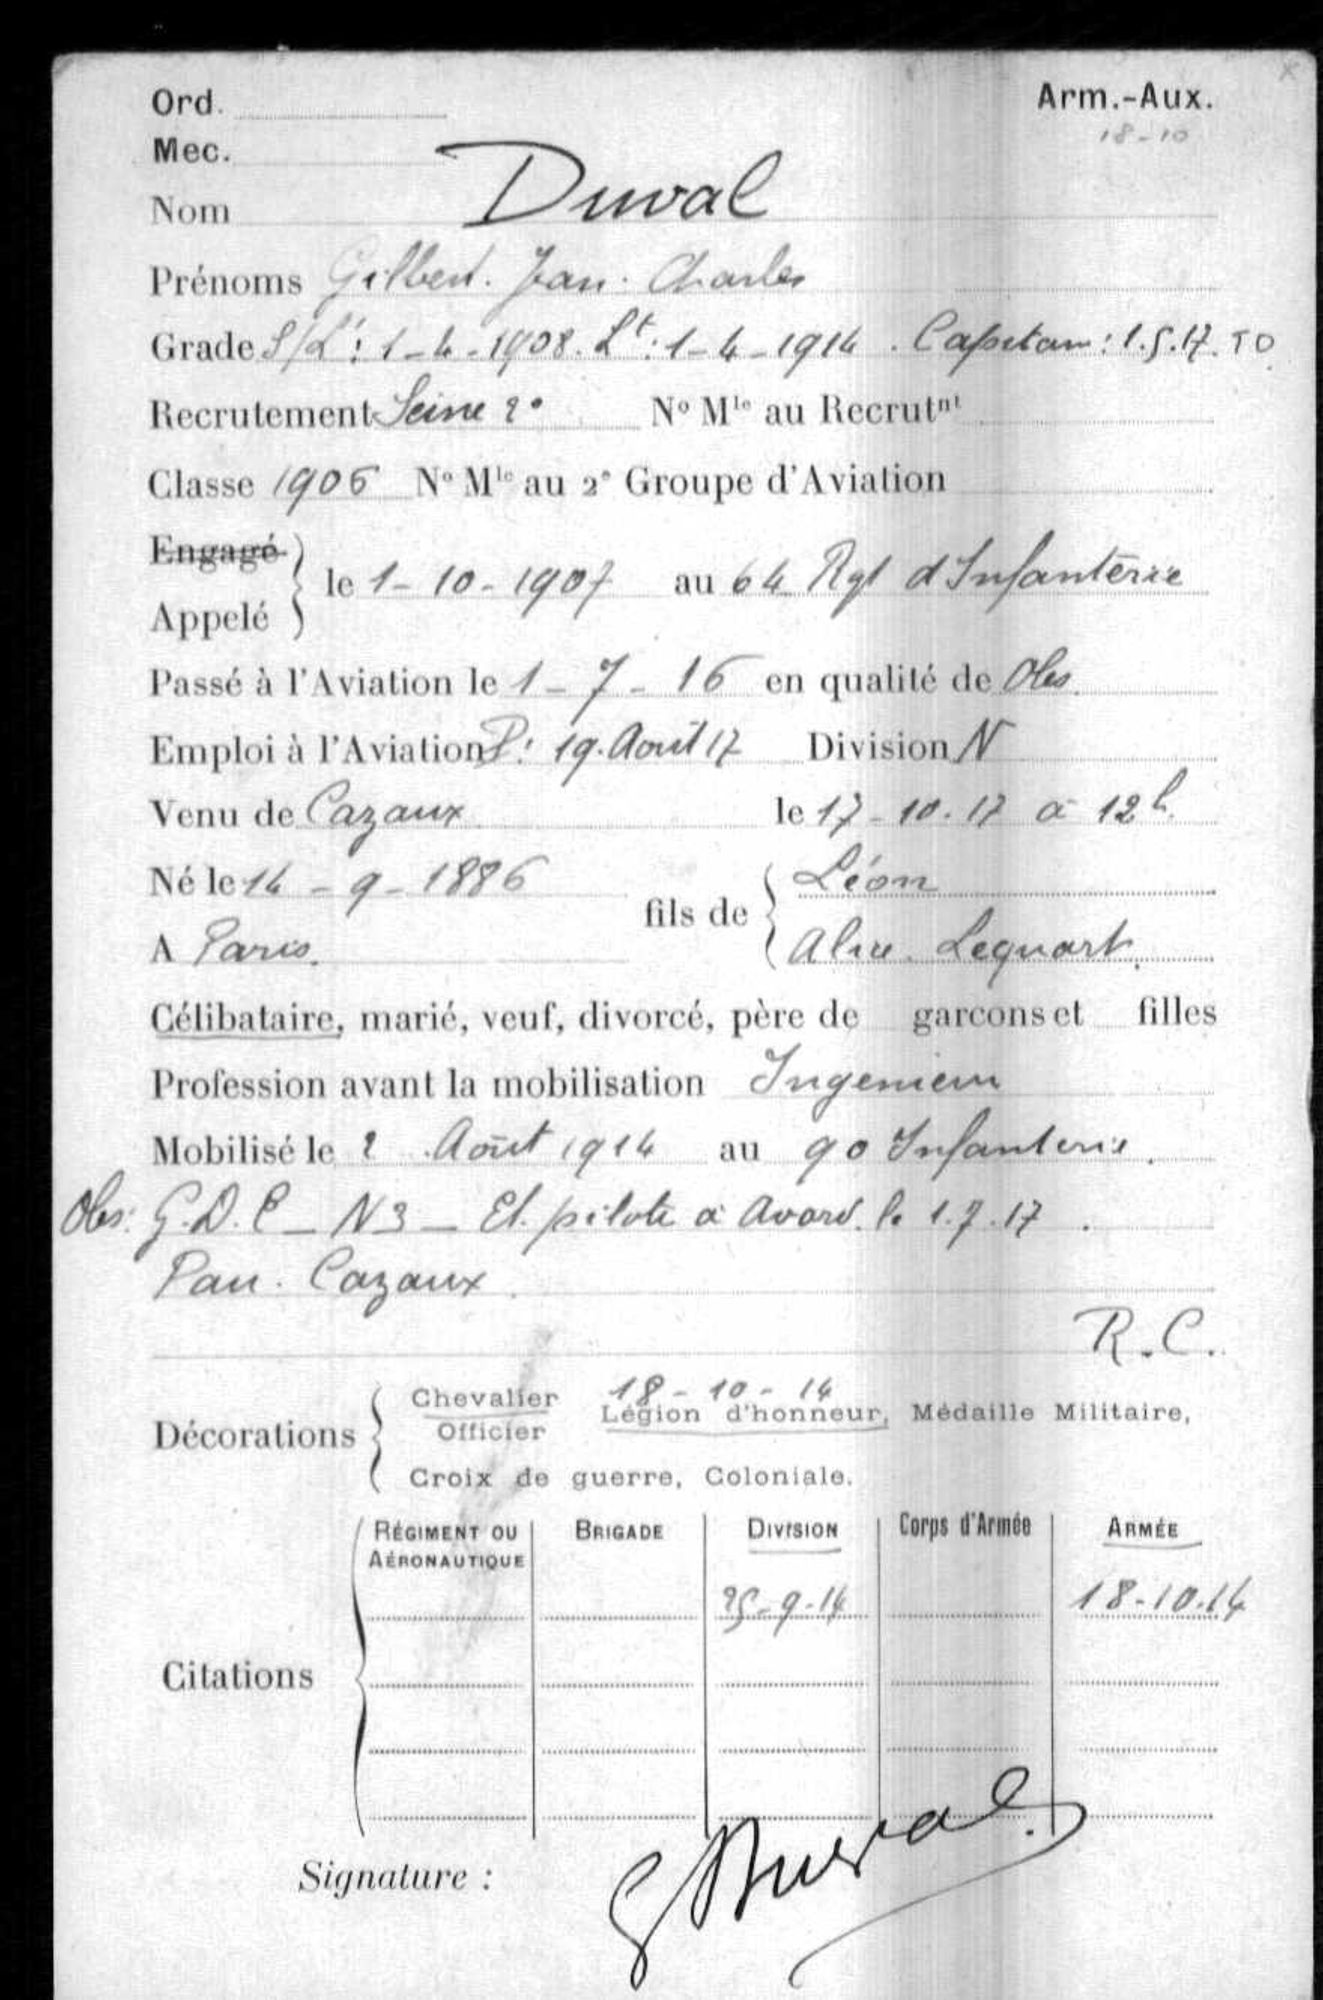 Ord. Arm.-Aux.
18-10
Mec.
Nom Duval
Prénoms Gilbert. Jean. Charles
Grade S/Lt: 1-4-1908. Lt: 1-4-1914. Capitaine: 1.5.17. TD
Recrutement Seine 2° N° Mle au Recrutnt
Classe 1906 N° Mle au 2e Groupe d'Aviation
Engagé
le 1-10-1907 au 64 Rgt d'Infanterie
Appelé
Passé à l'Aviation le 1-7-16 en qualité de Obs.
Emploi à l'Aviation P: 19. Août 17 Division N
Venu de Cazaux le 17-10-17 à 12h.
Né le 14-9-1886 fils de Léon
A Paris. Alice. Lequart.
Célibataire, marié, veuf, divorcé, père de garcons et filles
Profession avant la mobilisation Ingenieur
Mobilisé le 2 Août 1914 au 90 Infanterie.
Obs: G.D.E - N3 - El. pilote à Avord. le 1.7.17.
Pau. Cazaux.
R.C.
18-10-14
Décorations Chevalier Légion d'honneur, Médaille Militaire,
Officier
Croix de guerre, Coloniale.
RÉGIMENT OU AÉRONAUTIQUE BRIGADE DIVISION Corps d'Armée ARMÉE
25-9-14 18-10.14
Citations
Signature : G Duval